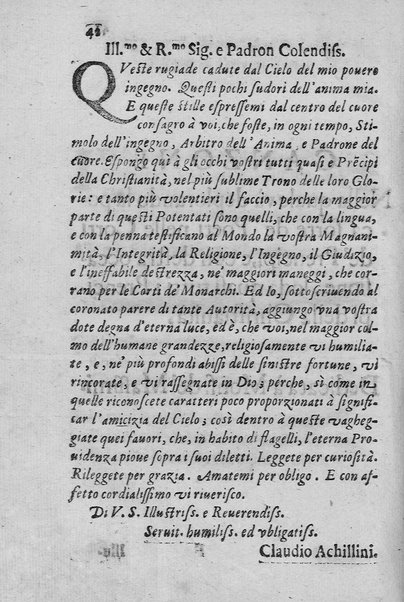 42
Ill.mo & R.mo Sig. e Padron Colendiss.
QVeste rugiade cadute dal Cielo del mio povero
ingegno. Questi pochi sudori dell'anima mia.
E queste stille espressemi dal centro del cuore
consagro à voi, che foste, in ogni tempo, Sti-
molo dell'ingegno, Arbitro dell'Anima, e Padrone del
cuore. Espongo quì à gli occhi vostri tutti quasi e Prẽcipi
della Christianità, nel più sublime Trono delle loro Glo-
rie: e tanto più volentieri il faccio, perche la maggior
parte di questi Potentati sono quelli, che con la lingua,
e con la penna testificano al Mondo la vostra Magnani-
mità, l'Integrità, la Religione, l'Ingegno, il Giudizio,
e l'ineffabile destrezza, ne' maggiori maneggi, che cor-
rano per le Corti de' Monarchi. Ed Io, sottoscrivendo al
coronato parere di tante Autorità, aggiungo vna vostra
dote degna d'eterna luce, ed è, che voi, nel maggior col-
mo dell'humane grandezze, religiosamente vi humilia-
te, e, ne' più profondi abissi delle sinistre fortune, vi
rincorate, e vi rassegnate in Dio; perche, sì come in
quelle riconoscete caratteri poco proporzionati à signifi-
car l'amicizia del Cielo; così dentro à queste vagheg-
giate quei fauori, che, in habito di flagelli, l'eterna Pro-
videnza pioue sopra i suoi diletti. Leggete per curiosità.
Rileggete per grazia. Amatemi per obligo. E con af-
fetto cordialissimo vi riuerisco.
Di V. S. Illustriss. e Reuerendiss.
Seruit. humiliss. ed vbligatiss.
Claudio Achillini.